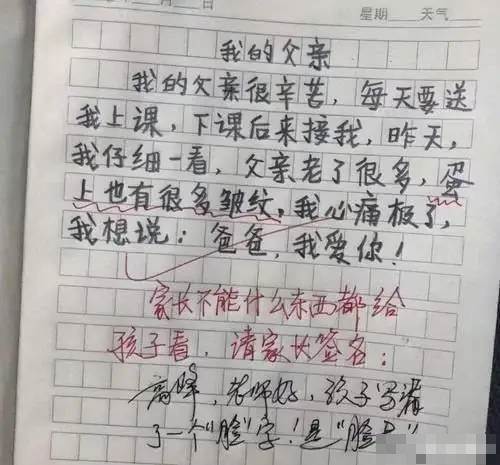 月 日 星期 天气
我的父亲
我的父亲很辛苦，每天要送
我上课，下课后来接我，昨天，
我仔细一看，父亲老了很多，蛋
上也有很多皱纹，我心痛极了，
我想说：爸爸，我爱你！
家长不能什么东西都给
孩子看，请家长签名：
高峰，老师好，孩子写错
了一个“脸”字！是“脸上”